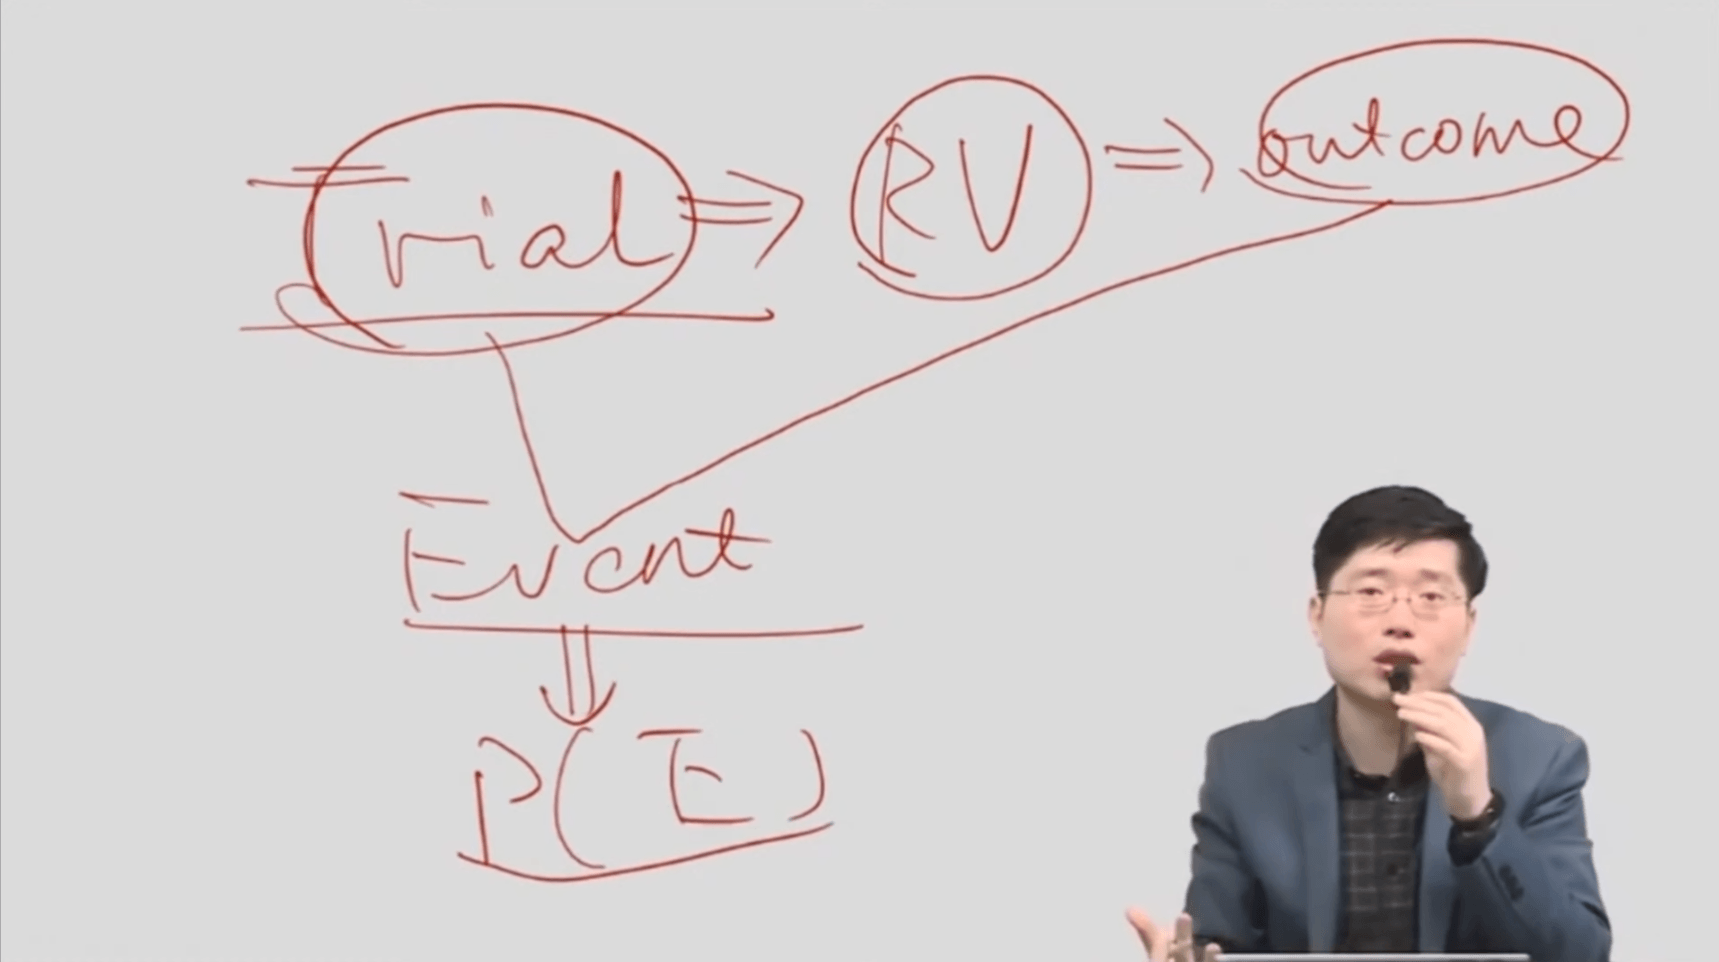 Trial ⇒ RV ⇒ outcome
Event
P(E)